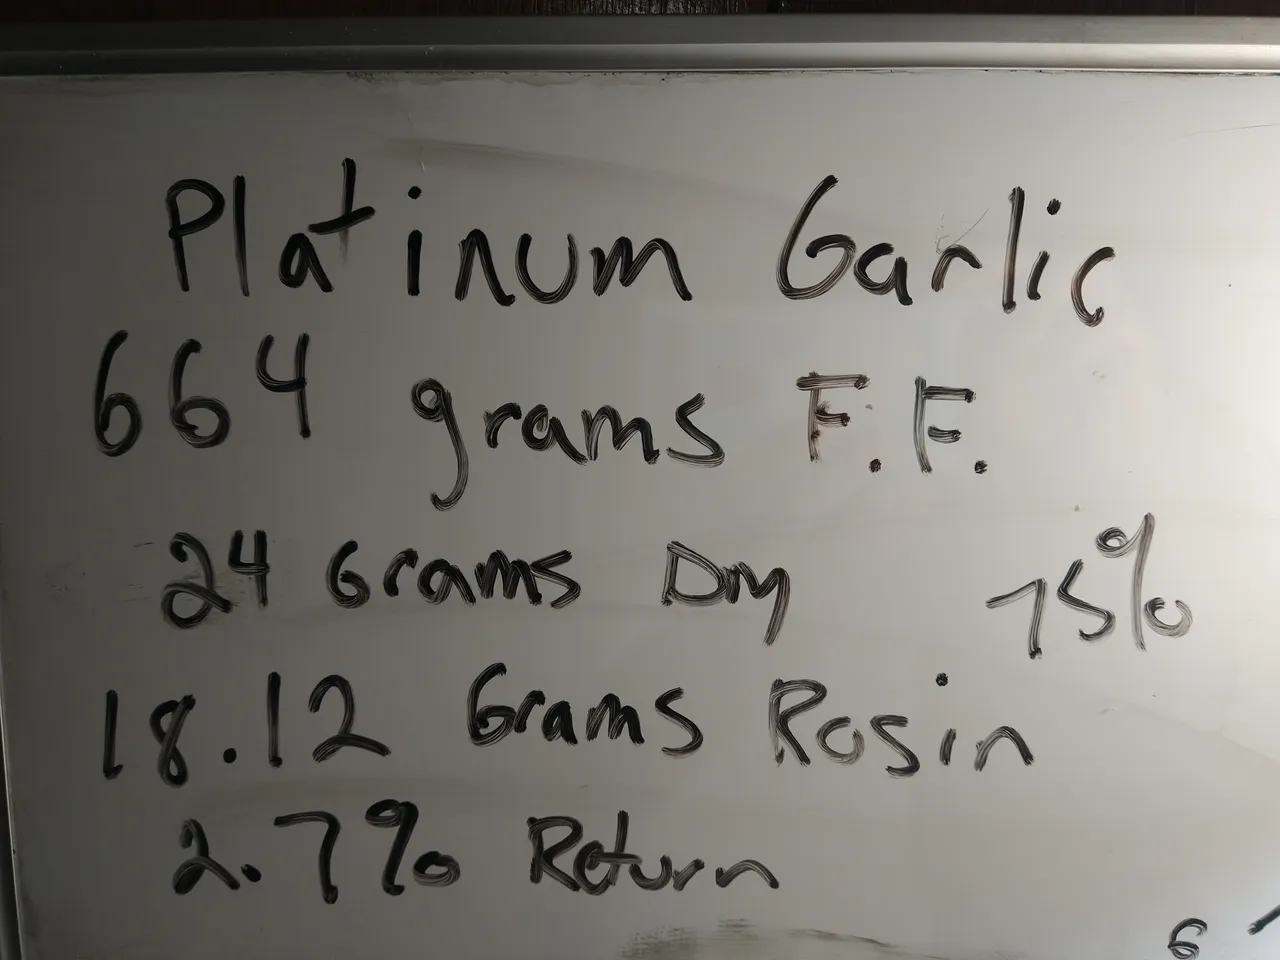 Platinum Garlic
664 grams F.F.
24 Grams Dry 75%
18.12 Grams Rosin
2.7% Return
6